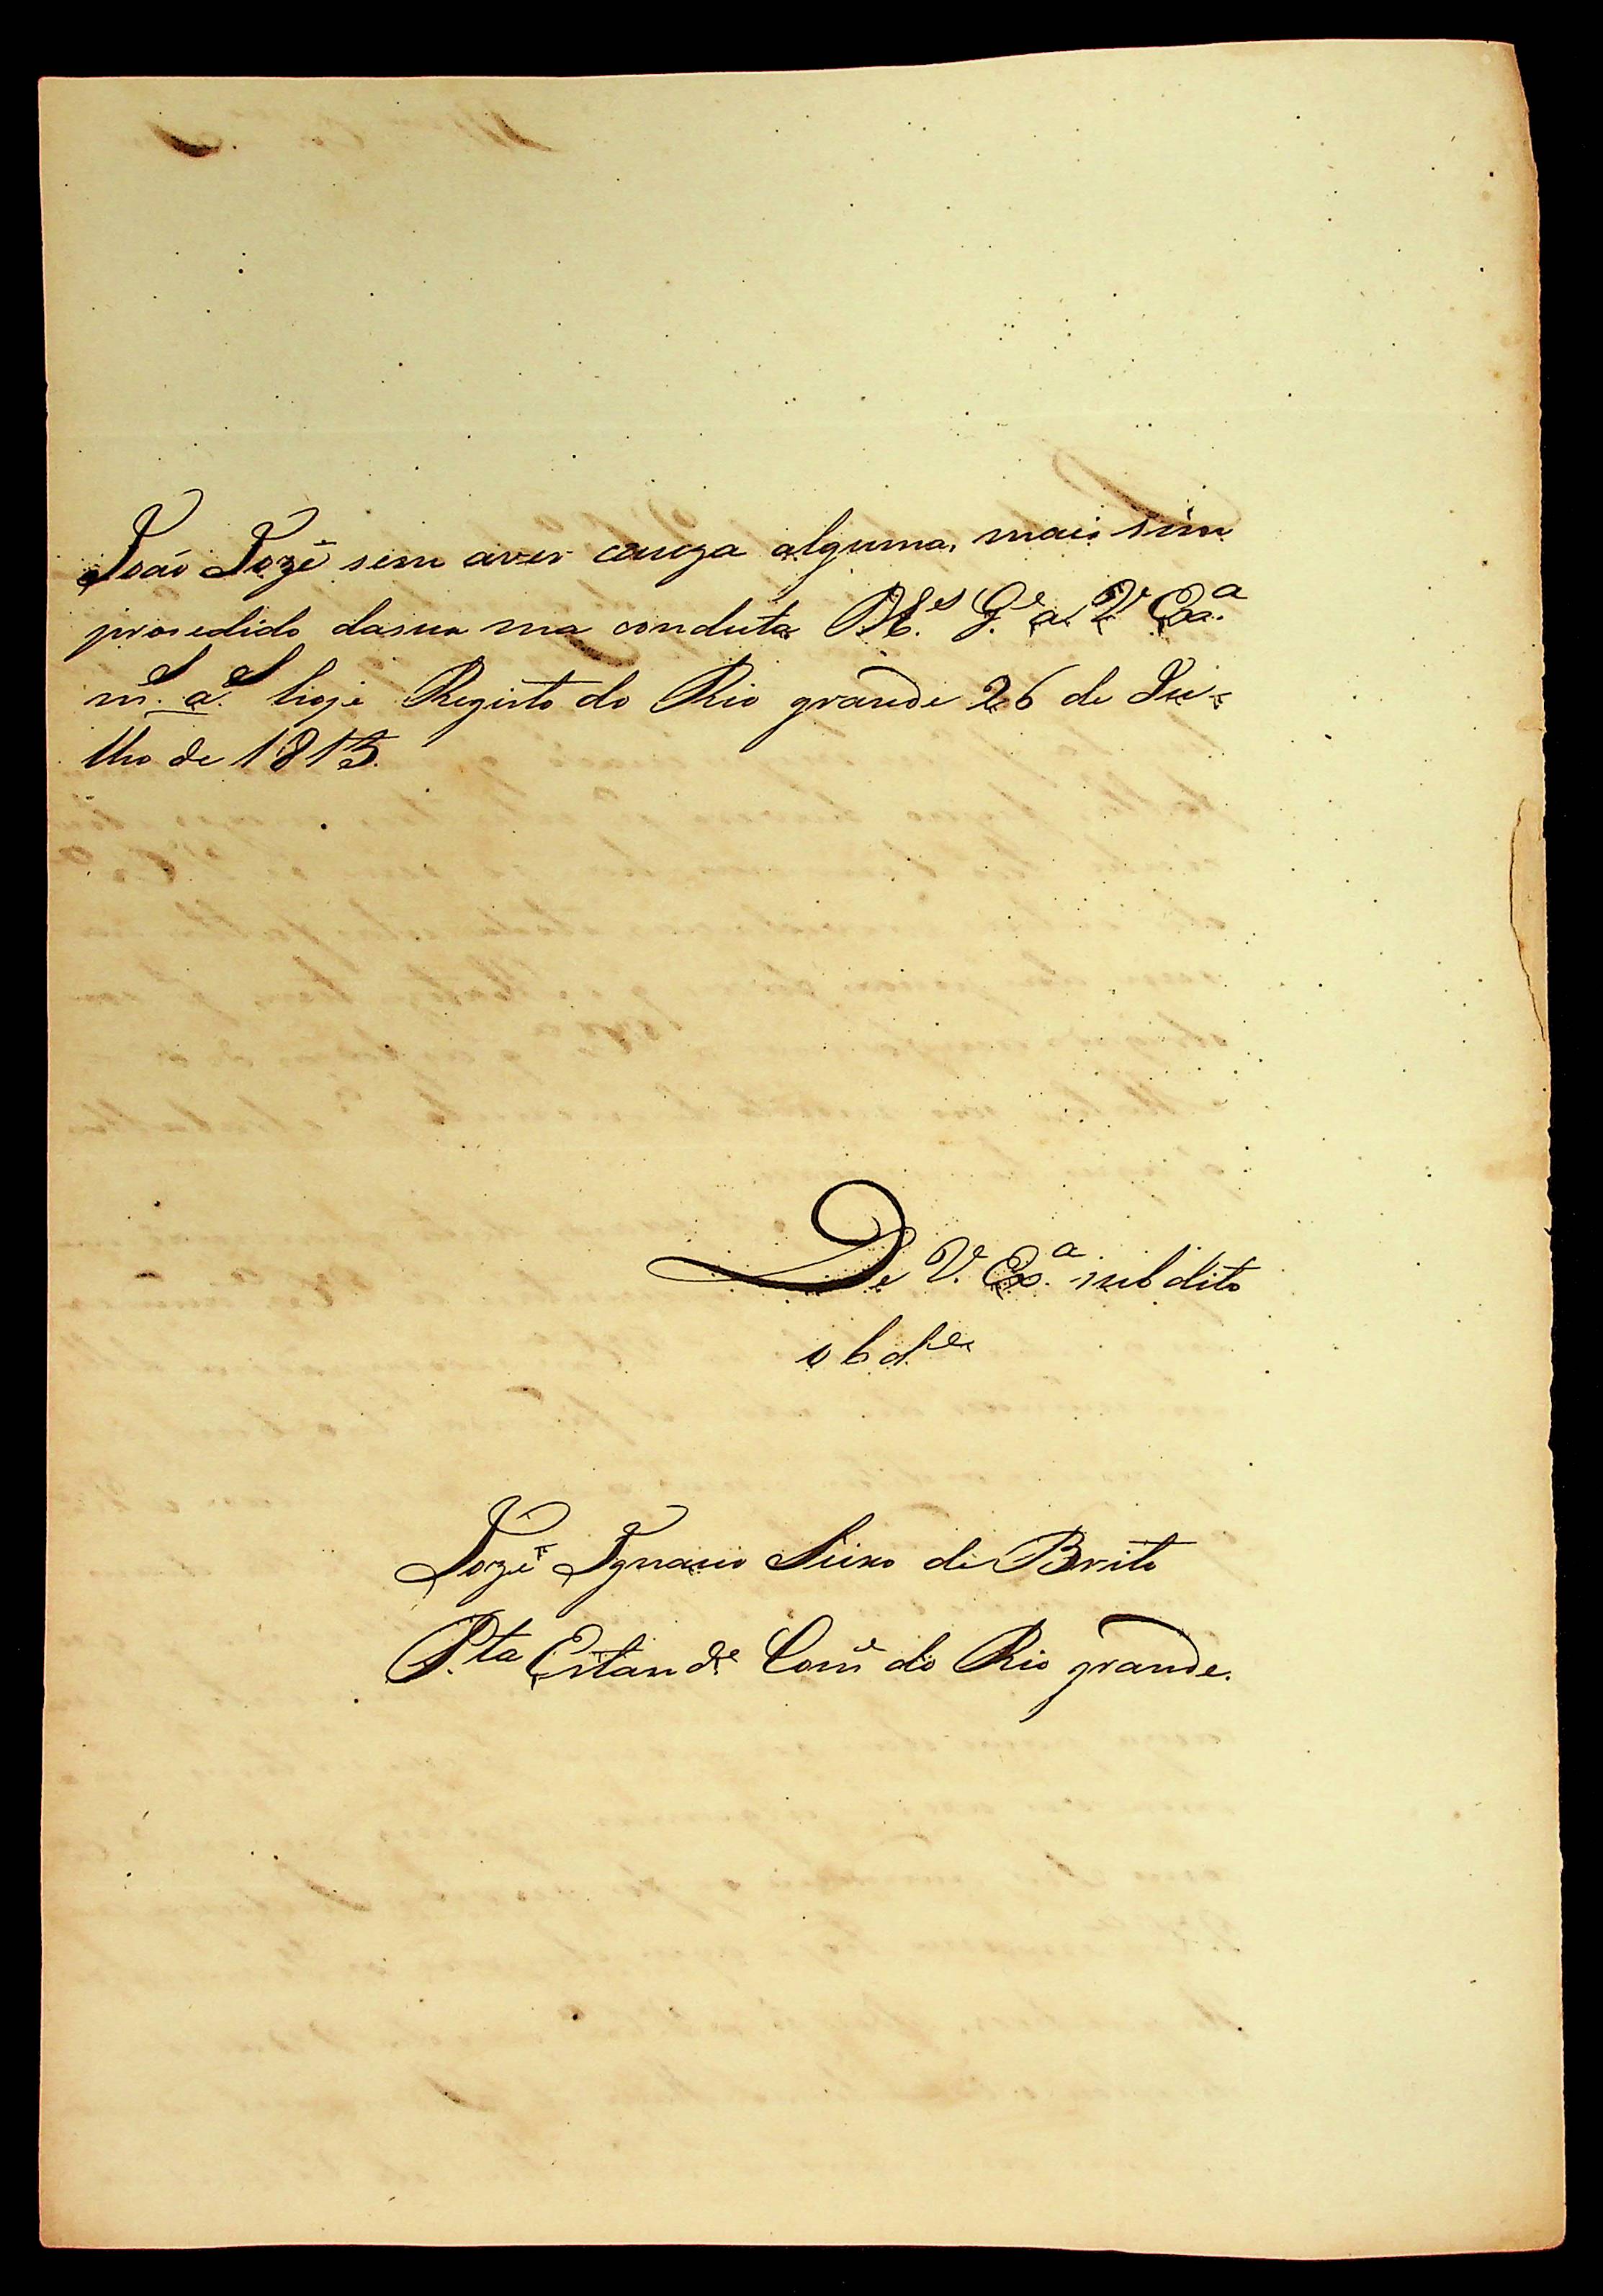 João Jozé sem aver cauza alguma, mais sim
prosedido dasua ma conduta D.s G.e a V. Exa.
m.s a.s hoje Registo do Rio grande 26 de Ju-
lho de 1813.
De V. Ex.a subdito
obd.e
Jozé Ignacio de Brito
P.ta Estand.e Com.e do Rio grande.